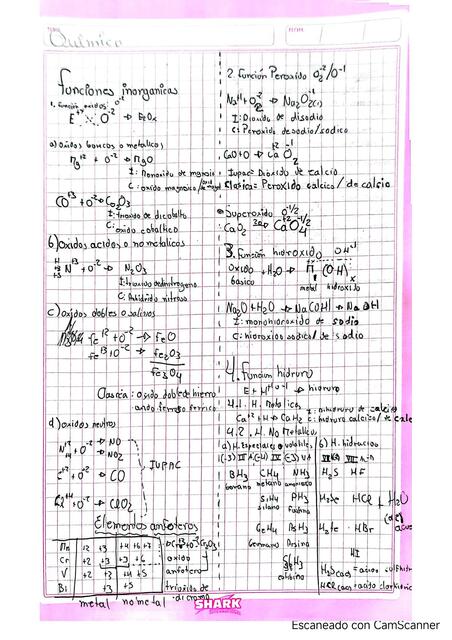 Química
Funciones inorganicas
1. Función oxidos O⁻²
E⁺ˣ O⁻² → E₂Ox
a) oxidos basicos o metalicos
Mg⁺² + O⁻² → MgO
I: Monoxido de magnesio
C: oxido magnesico
CO⁺³ + O⁻² → Co₂O₃
I: trioxido de dicobalto
C: oxido cobaltico
b) Oxidos acidos o no metalicos
N⁺³ + O⁻² → N₂O₃
I: trioxido de dinitrogeno
C: Anhidrido nitroso
c) Oxidos dobles o salinos
Fe⁺² + O⁻² → FeO
Fe⁺³ + O⁻² → Fe₂O₃
Fe₃O₄
Clasica: oxido doble de hierro
oxido ferroso ferrico
d) oxidos neutros
N⁺² + O⁻² → NO
N⁺⁴ NO₂
C⁺² + O⁻² → CO
Cl⁺⁴ + O⁻² → ClO₂
IUPAC
Elementos anfoteros
Mn +2 +3 +4 +6 +7
Cr +2 +3 +3 +6
V +2 +3 +4 +5
Bi +3 +5
oxido
anfotero
trioxido de
dicromo
metal no metal
2. Función Peroxido O₂⁻²/O⁻¹
Na₂O₂
I: Dioxido de disodio
C: Peroxido de sodio/sodico
CaO + O → CaO₂
Iupac= Dioxido de calcio
Clasica= Peroxido calcico / de calcio
Superoxido O⁻¹/²
CaO₂ → CaO₄
3. Función hidroxido OH⁻¹
Oxido + H₂O → M (OH)x
basico metal hidroxido
Na₂O + H₂O → Na(OH) → NaOH
I: monohidroxido de sodio
C: hidroxido sodico / de sodio
4. Funcion hidruro
E + H → hidruro
4.1. H. Metalicos
Ca⁺² + H → CaH₂
I: dihidruro de calcio
C: hidruro calcico / de calcio
4.2. H. No Metalicos
a) H. Especiales o volatiles
b) H. hidracido
BH₃ CH₄ NH₃ H₂S HF
borano metano amoniaco
SiH₄ PH₃ H₂Se HCl + H₂O
silano fosfina
GeH₄ AsH₃ H₂Te HBr
Germano Arsina
SbH₃ HI
estibina
H₂S(ac) = acido sulfhidrico
HCl(ac) = acido clorhidrico
SHARK
Escaneado con CamScanner